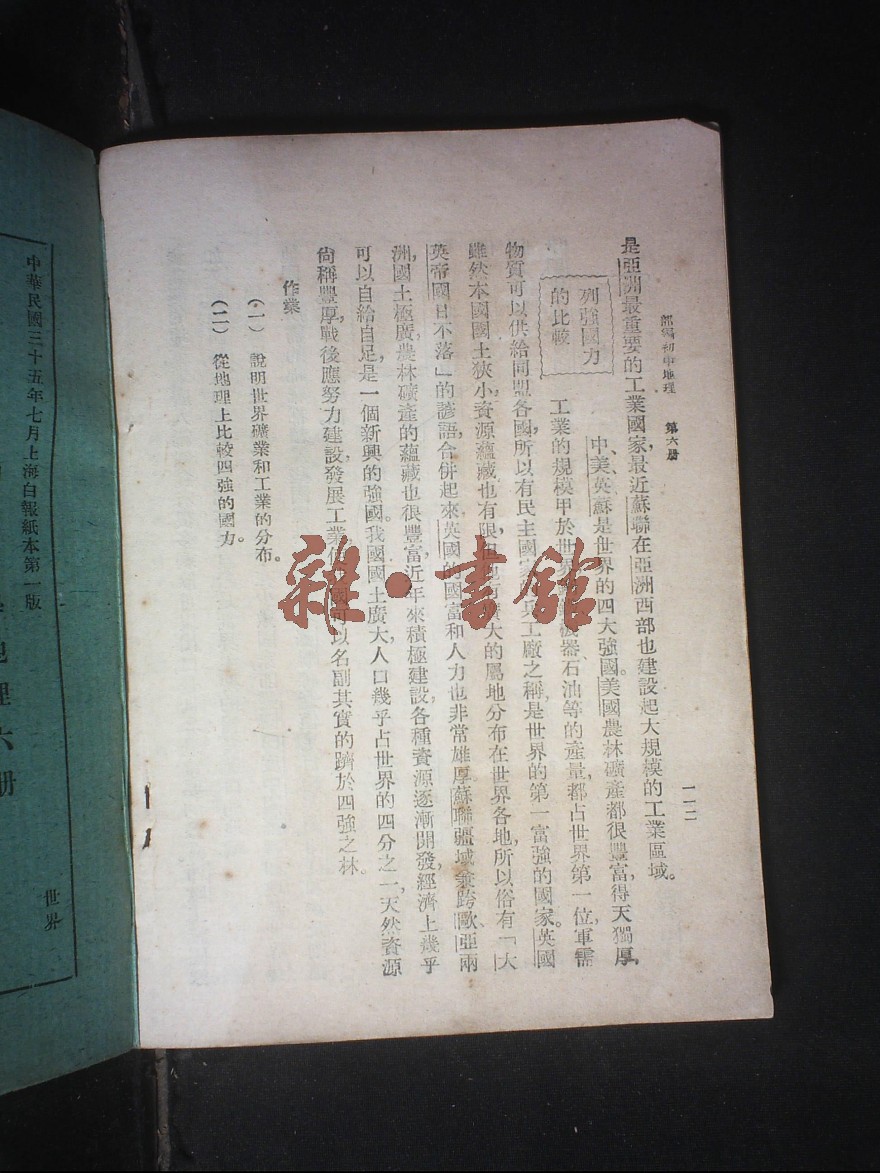 部編初中地理 第六册
一一二
是亞洲最重要的工業國家,最近蘇聯在亞洲西部也建設起大規模的工業區域。
列強國力
的比較
中、美、英、蘇是世界的四大強國。美國農林礦產都很豐富,得天獨厚,
工業的規模甲於世界
機器、石油等的產量,都占世界第一位,軍需
物質可以供給同盟各國,所以有民主國
兵工廠之稱,是世界的第一富強的國家。英國
雖然本國國土狹小,資源蘊藏也有限,但
廣大的屬地分布在世界各地,所以俗有「大
英帝國日不落」的諺語,合併起來,英國的國富和人力也非常雄厚。蘇聯疆域兼跨歐、亞兩
洲,國土極廣,農林礦產的蘊藏也很豐富,近年來積極建設,各種資源逐漸開發,經濟上幾乎
可以自給自足,是一個新興的強國。我國國土廣大,人口幾乎占世界的四分之一,天然資源
尙稱豐厚,戰後應努力建設,發展工業,
國可以名副其實的躋於四強之林。
作業
(一) 說明世界礦業和工業的分布。
(二) 從地理上比較四強的國力。
雜·書館
中華民國三十五年七月上海白報紙本第一版
地理六册
世界